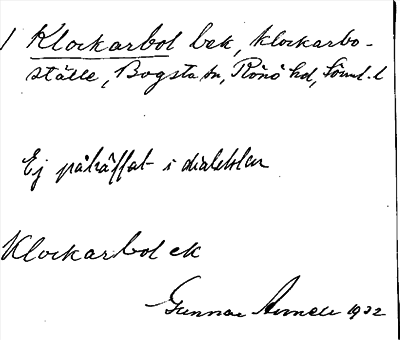 1 Klockarbol bek, klockarbo-
ställe, Bogsta sn, Rönö hd, Söml. l
Ej påträffat i dialekten
Klockarbol ek
Gunnar 1932